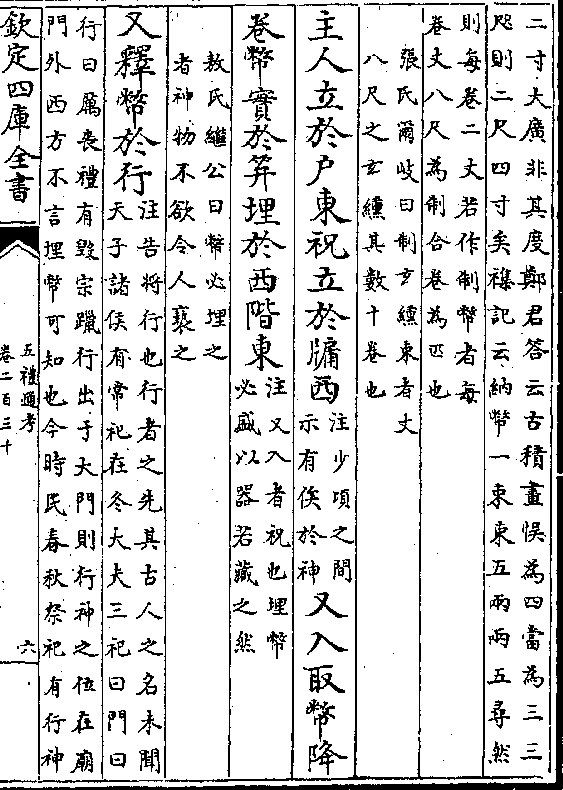 二寸大廣非其度鄭君答云古積畫悞為四當為三三
咫則二尺四寸矣襍記云納幣一束束五兩兩五尋然
則每卷二丈若作制幣者每
卷丈八尺為制合卷為匹也
張氏爾岐曰制玄纁束者丈
八尺之玄纁其數十卷也
主人立於户東祝立於牖西
注少頃之間
示有俟於神
又入取幣降
卷幣實於笲埋於西階東
注又入者祝也埋幣
必盛以器若藏之然
敖氏繼公曰幣必埋之
者神物不欲令人褻之
又釋幣於行
注告將行也行者之先其古人之名未聞
天子諸侯有常祀在冬大夫三祀曰門曰
行曰厲喪禮有毀宗躐行出于大門則行神之位在廟
門外西方不言埋幣可知也今時民春秋祭祀有行神
欽定四庫全書
五禮通考
卷二百三十
六